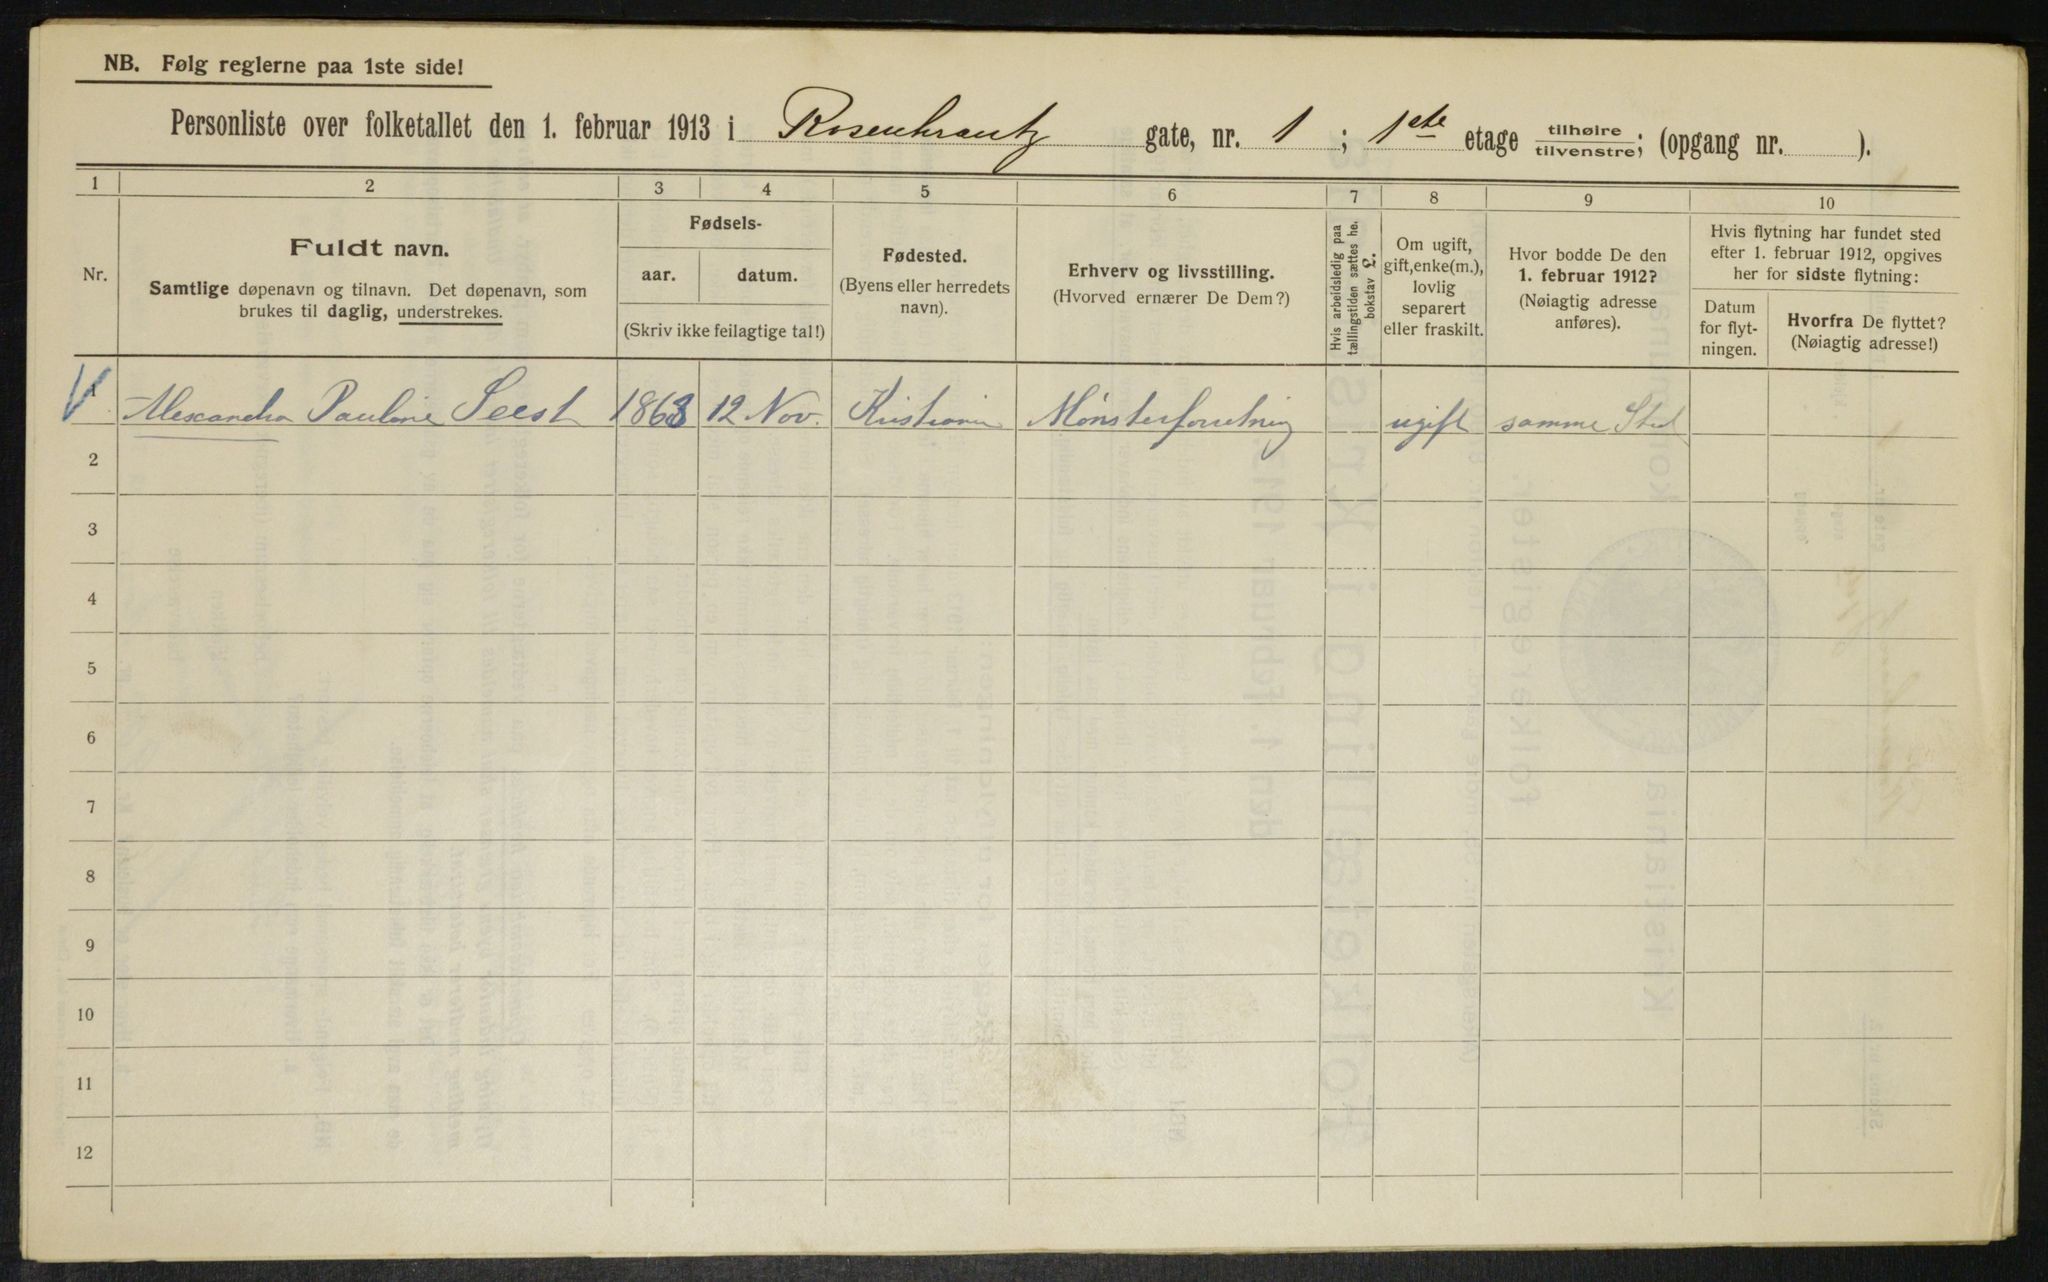 NB. Følg reglerne paa 1ste side!
Personliste over folketallet den 1. februar 1913 i Rosenkrantz gate, nr. 1 ; 1ste etage tilhøire tilvenstre; (opgang nr. ).
1 2 3 4 5 6 7 8 9 10
Nr.
Fuldt navn.
Samtlige døpenavn og tilnavn. Det døpenavn, som
brukes til daglig, understrekes.
Fødsels-
aar. datum.
(Skriv ikke feilagtige tal!)
Fødested.
(Byens eller herredets
navn).
Erhverv og livsstilling.
(Hvorved ernærer De Dem?)
Hvis arbeidsledig paa
tællingstiden sættes he.
bokstav L.
Om ugift,
gift, enke(m.),
lovlig
separert
eller fraskilt.
Hvor bodde De den
1. februar 1912?
(Nøiagtig adresse
anføres).
Hvis flytning har fundet sted
efter 1. februar 1912, opgives
her for sidste flytning:
Datum
for flyt-
ningen.
Hvorfra De flyttet?
(Nøiagtig adresse!)
1 Alexandra Pauline Seest 1863 12 Nov. Kristiania Mønsterforretning ugift samme Sted
2
3
4
5
6
7
8
9
10
11
12